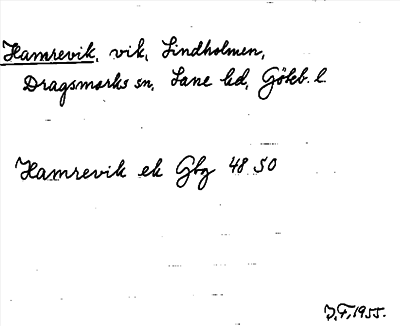 Hamrevik, vik, Lindholmen,
Dragsmarks sn, Lane hd, Göteb. l.
Hamrevik ek Gbg 48 50
J.F. 1955.